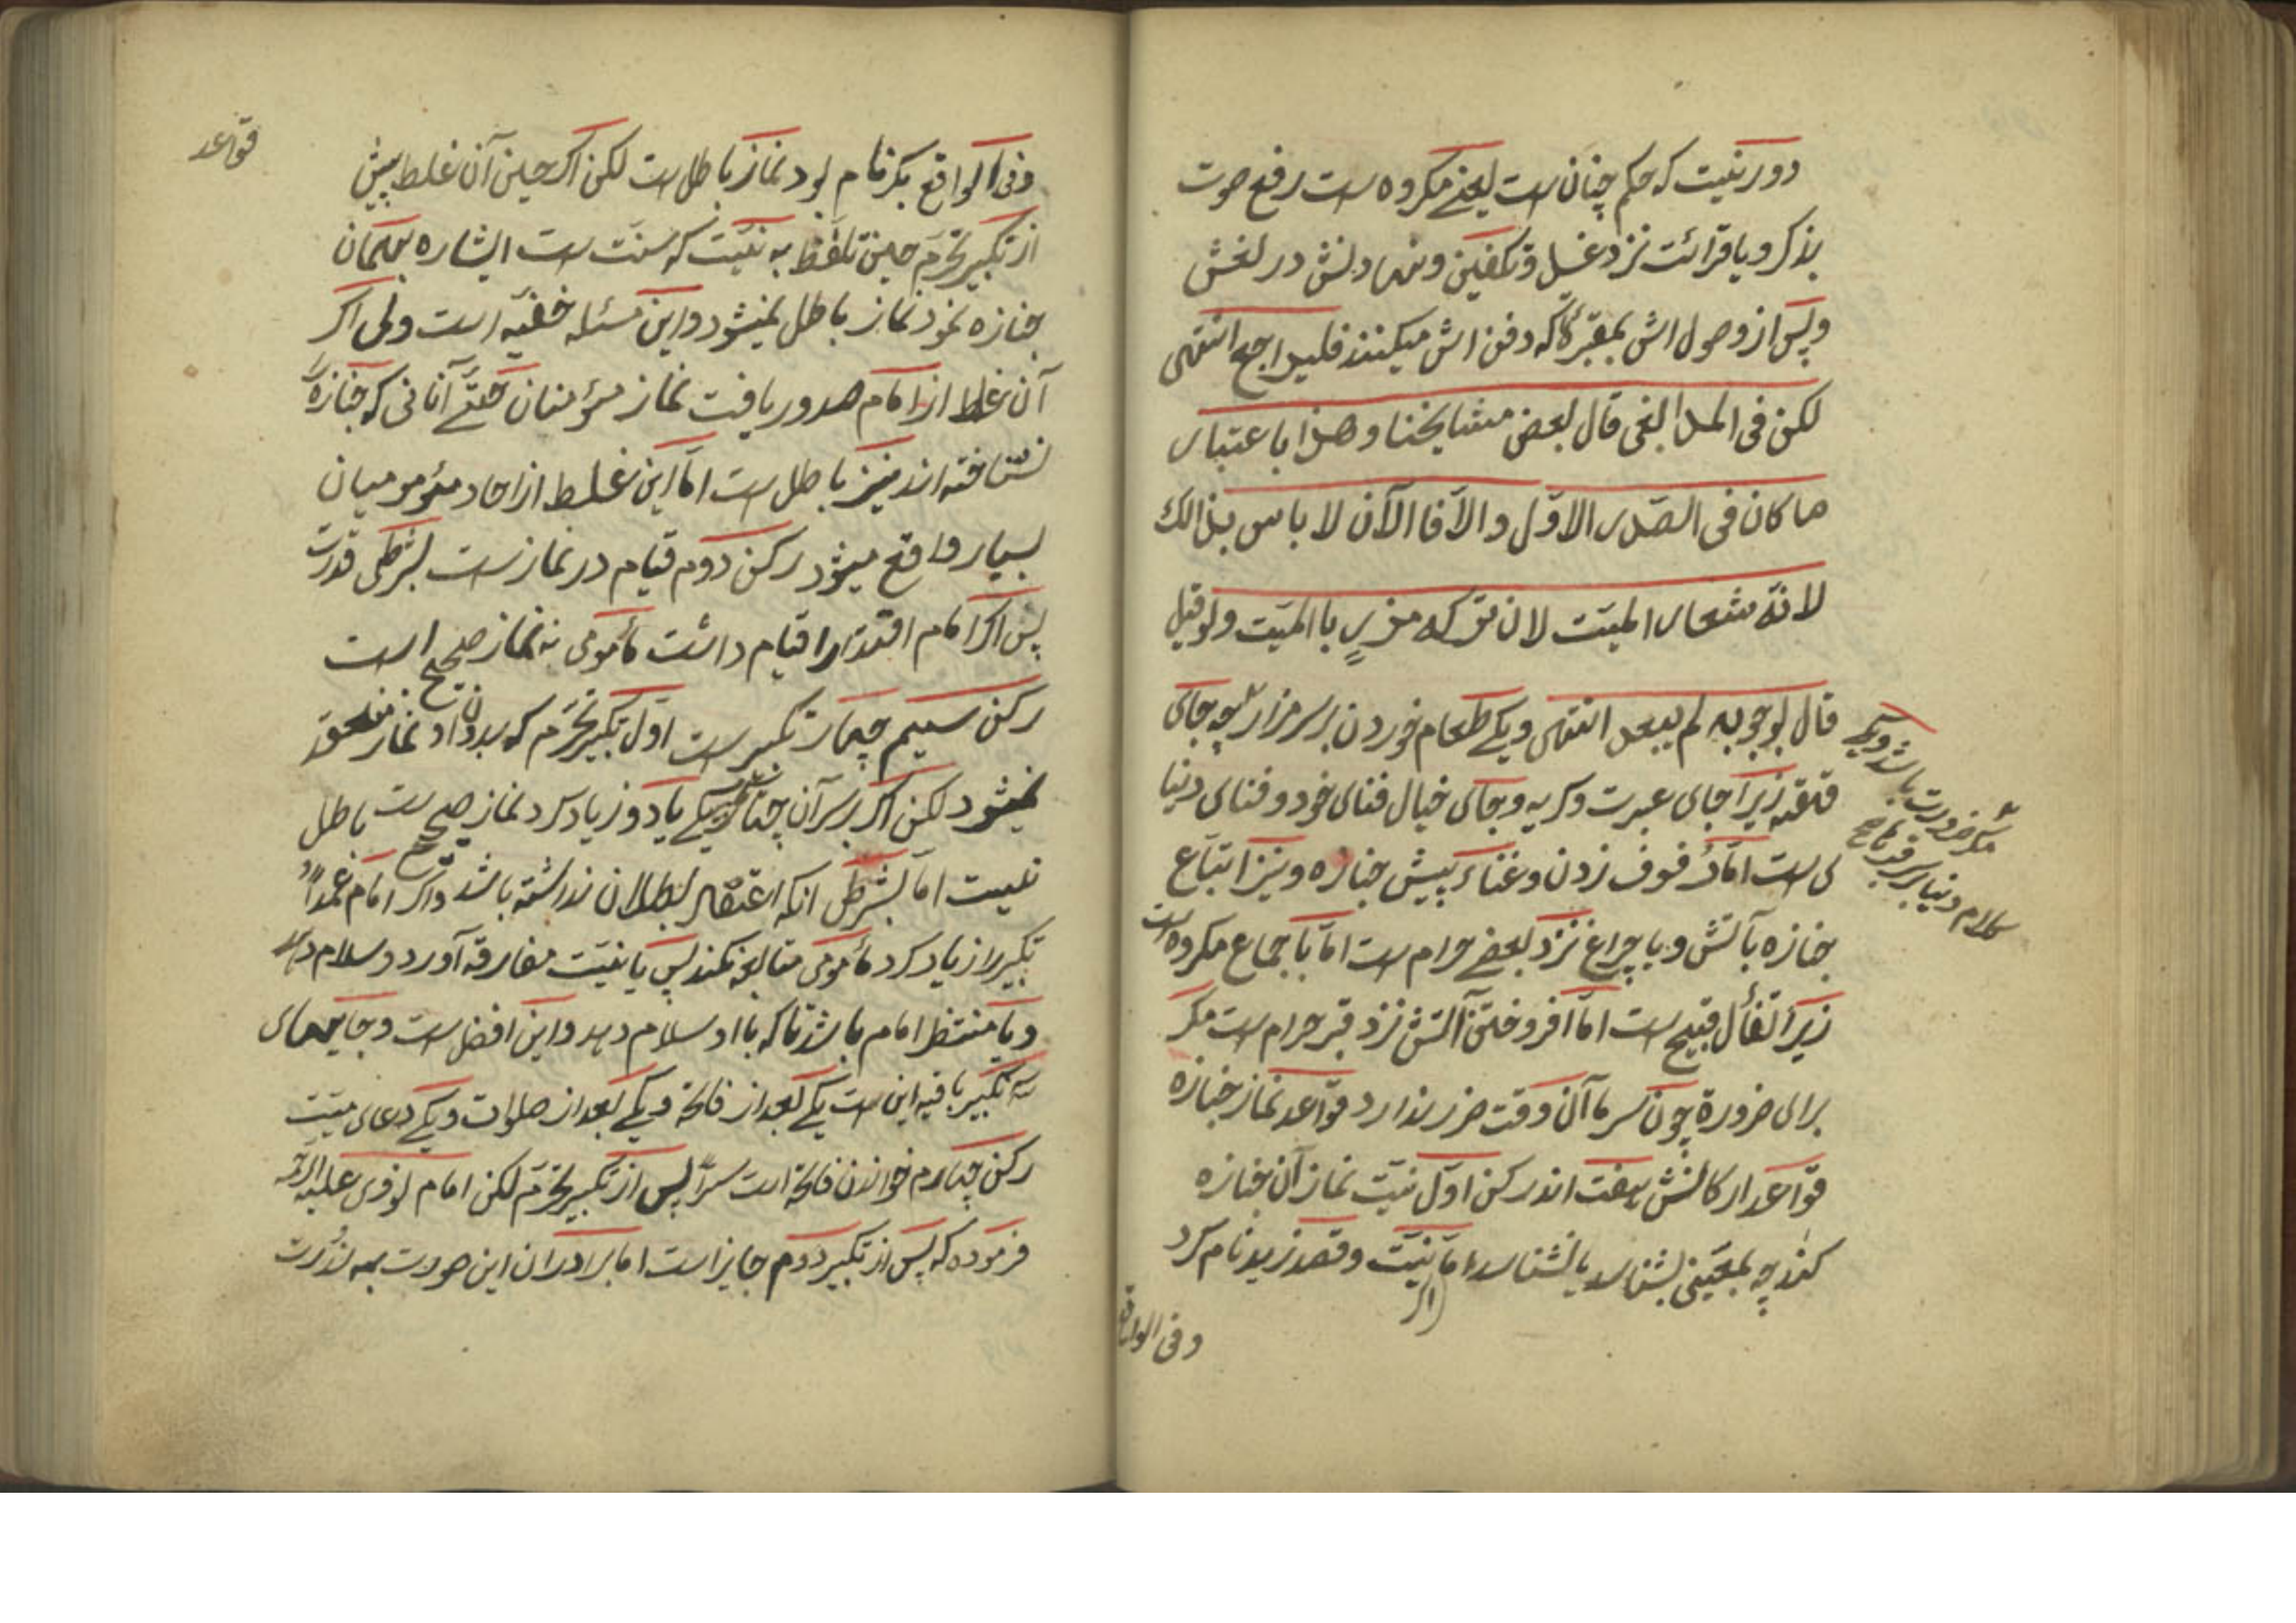 دور نیت که حکم چنان است یعنے مکروه است رفع صوت
بذکر و یا قرائت نزد غسل و تکفین و نهادنش در نعش
و پس از وصول اش بمقبرۀ که دفن اش میکنند فلیراجع انتهی
لکن فی المدابغی قال بعض مشایخنا و هذا باعتبار
ما کان فی الصّدر الاوّل و الاّ فالآن لا باس بذالك
لانّه شعار المیّت لان ترکه مزرٍ باالمیّت ولو قیل
قال بوجوبه لم یبعد انتهی و یکے طعام خوردن بر سر مزار چه جای
مگر ضرورت باشد و یکے
کلام دنیا بر سر قبر
قهقه زیرا جای عبرت و کریه و جای خیال فنای خود و فنای دنیا
ی است امّا دُف زدن و غناء پیش جنازه و نیز اتباع
جنازه بآتش و با چراغ نزد بعضے حرام است امّا باجماع مکروه است
زیرا تفأل قبیح است امّا افروختن آتش نزد قبر حرام است مکر
برای ضرورة چون سرما آن وقت ضرر ندارد قواعد نماز جنازه
قواعد ارکانش هفت اند رکن اوّل نیّت نماز آن جنازه
کند چه بمعیّنی بشناسد یا نشناسد امّا نیّت و قصد زید نام کرد
اکر
وفی الواقع
قواعد
وفی الواقع بکر نام بود نماز باطل است لکن اکر حین آن غلط پیش
از تکبیر تحرّم حین تلفّظ به نیّت که سنّت است اشاره بهمان
جنازه نمود نماز باطل نمیشود و این مسئله خفیّه است ولی اکر
آن غلط از امام صدور یافت نماز مؤمنان حتّے آنانی که جنازۀ
نشناخته اند نیز باطل است امّا این غلط از احاد مئومومیان
بسیار واقع میشود رکن دوم قیام در نماز است بشرطی قدرت
پس اکر امام اقتدار قیام داشت مأمومی نه نماز صحیح است
رکن سییم چهار تکبیر است اوّل تکبیر تحرّم که بدون او نماز منعقد
نمیشود لکن اکر بر سر آن چهار یکے یا دو زیاد کرد نماز صحیح است باطل
نیست امّا بشرطی انکه اعتقاد بطلان نداشته باشد و اکر امام عمداً
تکبیر را زیاد کرد مأمومی متابعه نکند پس یا نیّت مفارقه آورد و سلام دهد
و یا منتظر امام باشد تا که با او سلام دهد و این افضل است و جایهای
سه تکبیر باقیه این است یکے بعد از فاتحة و یکے بعد از صلوات و یکے دعای میّت
رکن چهارم خواندن فاتحة است سرّاً پس از تکبیر تحرّم لکن امام نووی علیه الرّحمة
فرموده که پس از تکبیر دوم جایز است اما برادران این صورت به ندرت